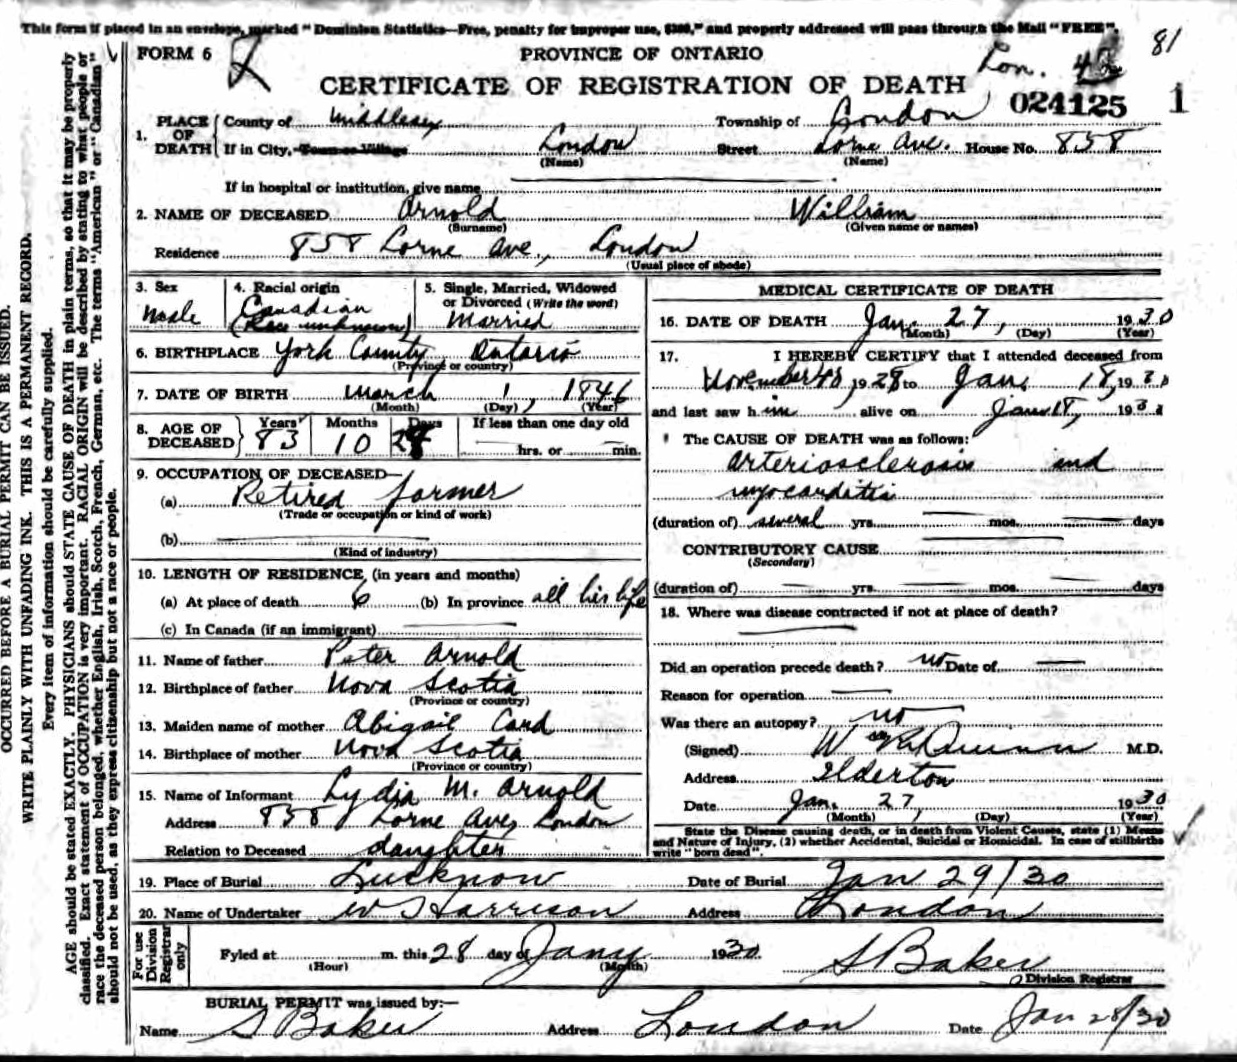 This form if placed in an envelope, marked "Dominion Statistics—Free, penalty for improper use, $300," and properly addressed will pass through the Mail "FREE".
81
FORM 6
PROVINCE OF ONTARIO
Lon.
CERTIFICATE OF REGISTRATION OF DEATH
024125 1
1. PLACE OF DEATH County of Middlesex Township of London
If in City, Town or Village London Street Lorne Ave. House No. 858
(Name) (Name)
If in hospital or institution, give name
2. NAME OF DECEASED Arnold William
(Surname) (Given name or names)
Residence 858 Lorne Ave., London
(Usual place of abode)
3. Sex Male
4. Racial origin Canadian (Race unknown)
5. Single, Married, Widowed or Divorced (Write the word) Married
6. BIRTHPLACE York County, Ontario
(Province or country)
7. DATE OF BIRTH March 1, 1846
(Month) (Day) (Year)
8. AGE OF DECEASED Years 83 Months 10 Days If less than one day old
hrs. or min.
9. OCCUPATION OF DECEASED—
(a) Retired farmer
(Trade or occupation or kind of work)
(b)
(Kind of industry)
10. LENGTH OF RESIDENCE (in years and months)
(a) At place of death 6 (b) In province all his life
(c) In Canada (if an immigrant)
11. Name of father Peter Arnold
12. Birthplace of father Nova Scotia
(Province or country)
13. Maiden name of mother Abigail Card
14. Birthplace of mother Nova Scotia
(Province or country)
15. Name of Informant Lydia M. Arnold
Address 858 Lorne Ave, London
Relation to Deceased daughter
MEDICAL CERTIFICATE OF DEATH
16. DATE OF DEATH Jan. 27, 1930
(Month) (Day) (Year)
17. I HEREBY CERTIFY that I attended deceased from
November 1928 to Jan. 18, 19
and last saw him alive on Jan 18, 19
The CAUSE OF DEATH was as follows:
arteriosclerosis and
myocarditis
(duration of) several yrs. mos. days
CONTRIBUTORY CAUSE
(Secondary)
(duration of) yrs. mos. days
18. Where was disease contracted if not at place of death?
Did an operation precede death? no Date of
Reason for operation
Was there an autopsy? no
(Signed) W M.D.
Address Ilderton
Date Jan. 27, 1930
(Month) (Day) (Year)
State the Disease causing death, or in death from Violent Causes, state (1) Means
and Nature of Injury, (2) whether Accidental, Suicidal or Homicidal. In case of stillbirths
write "born dead".
19. Place of Burial Lucknow Date of Burial Jan 29/30
20. Name of Undertaker W J Harrison Address London
For use Division Registrar only
Fyled at m. this 28 day of Jany 1930
(Hour) (Month)
S Baker
Division Registrar
BURIAL PERMIT was issued by:—
Name S Baker Address London Date Jan 28/30
OCCURRED BEFORE A BURIAL PERMIT CAN BE ISSUED.
WRITE PLAINLY WITH UNFADING INK. THIS IS A PERMANENT RECORD.
Every item of information should be carefully supplied.
AGE should be stated EXACTLY. PHYSICIANS should STATE CAUSE OF DEATH in plain terms, so that it may be properly
classified. Exact statement of OCCUPATION is very important. RACIAL ORIGIN will be described by stating to what people or
race the deceased person belonged, whether English, Irish, Scotch, French, German, etc. The terms "American" or "Canadian"
should not be used, as they express citizenship but not a race or people.